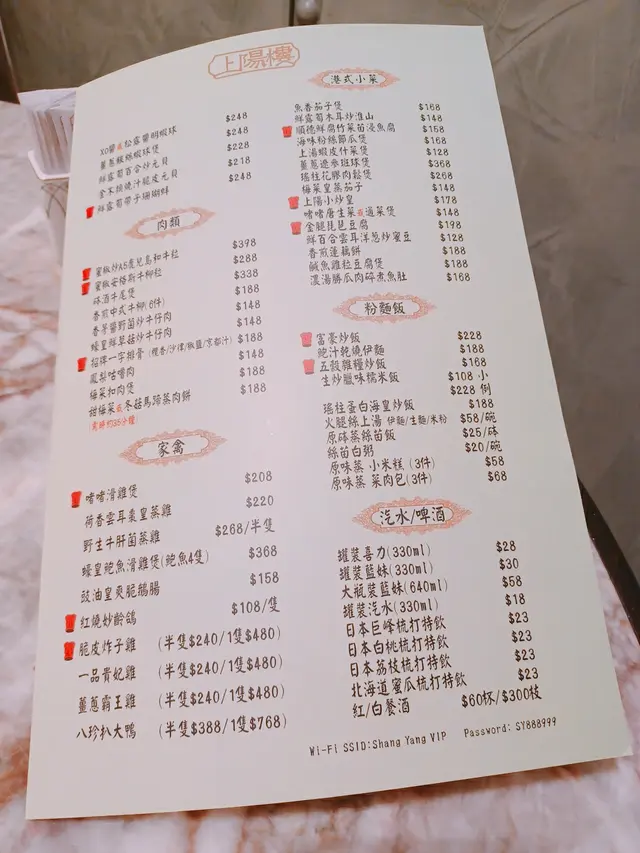 上陽樓
XO醬或松露醬明蝦球 $248
薑蔥粉絲蝦球煲 $248
鮮露筍百合炒元貝 $228
金不換燒汁脆皮元貝 $218
鮮露筍帶子珊瑚蚌 $248
肉類
蜜椒炒A5鹿兒島和牛粒 $398
蜜椒安格斯牛柳粒 $288
砵酒牛尾煲 $338
香煎中式牛柳(6件) $188
香茅醬野菌炒牛仔肉 $148
蠔皇鮮草菇炒牛仔肉 $148
招牌一字排骨 (橙香/沙律/椒鹽/京都汁) $188
鳳梨咕嚕肉 $148
梅菜扣肉煲 $188
甜梅菜或冬菇馬蹄蒸肉餅 $188
需時約35分鐘
家禽
啫啫滑雞煲 $208
荷香雲耳棗皇蒸雞 $220
野生牛肝菌蒸雞 $268/半隻
蠔皇鮑魚滑雞煲(鮑魚4隻) $368
豉油皇爽脆鵝腸 $158
紅燒妙齡鴿 $108/隻
脆皮炸子雞 (半隻$240/1隻$480)
一品貴妃雞 (半隻$240/1隻$480)
薑蔥霸王雞 (半隻$240/1隻$480)
八珍扒大鴨 (半隻$388/1隻$768)
港式小菜
魚香茄子煲 $168
鮮露筍木耳炒淮山 $148
順德鮮腐竹菜苗浸魚腐 $158
海味粉絲節瓜煲 $168
上湯蝦皮什菜煲 $128
薑蔥遼參班球煲 $368
瑤柱花膠肉鬆煲 $268
梅菜皇蒸茄子 $148
上陽小炒皇 $178
啫啫唐生菜或通菜煲 $148
金腿琵琶豆腐 $198
鮮百合雲耳洋蔥炒蜜豆 $128
香煎蓮藕餅 $188
鹹魚雞粒豆腐煲 $188
濃湯勝瓜肉碎煮魚肚 $168
粉麵飯
富豪炒飯 $228
鮑汁乾燒伊麵 $188
五穀雜糧炒飯 $168
生炒臘味糯米飯 $108 小
$228 例
瑤柱蛋白海皇炒飯 $188
火腿絲上湯 伊麵/生麵/米粉 $58/碗
原砵蒸絲苗飯 $25/砵
絲苗白粥 $20/碗
原味蒸 小米糕 (3件) $58
原味蒸 菜肉包(3件) $68
汽水/啤酒
罐裝喜力(330ml) $28
罐裝藍妹(330ml) $30
大瓶裝藍妹(640ml) $58
罐裝汽水(330ml) $18
日本巨峰梳打特飲 $23
日本白桃梳打特飲 $23
日本荔枝梳打特飲 $23
北海道蜜瓜梳打特飲 $23
紅/白餐酒 $60杯/$300枝
Wi-Fi SSID:Shang Yang VIP Password: SY888999